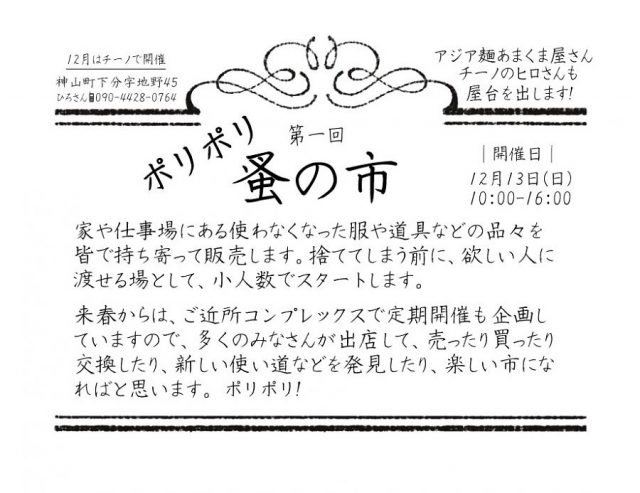 12月はチーノで開催
神山町下分字地野45
ひろさん📱090-4428-0764
アジア麺あまくま屋さん
チーノのヒロさんも
屋台を出します!
ポリポリ
第一回
蚤の市
|開催日|
12月13日(日)
10:00-16:00
家や仕事場にある使わなくなった服や道具などの品々を
皆で持ち寄って販売します。捨ててしまう前に、欲しい人に
渡せる場として、小人数でスタートします。
来春からは、ご近所コンプレックスで定期開催も企画し
ていますので、多くのみなさんが出店して、売ったり買ったり
交換したり、新しい使い道などを発見したり、楽しい市にな
ればと思います。ポリポリ!